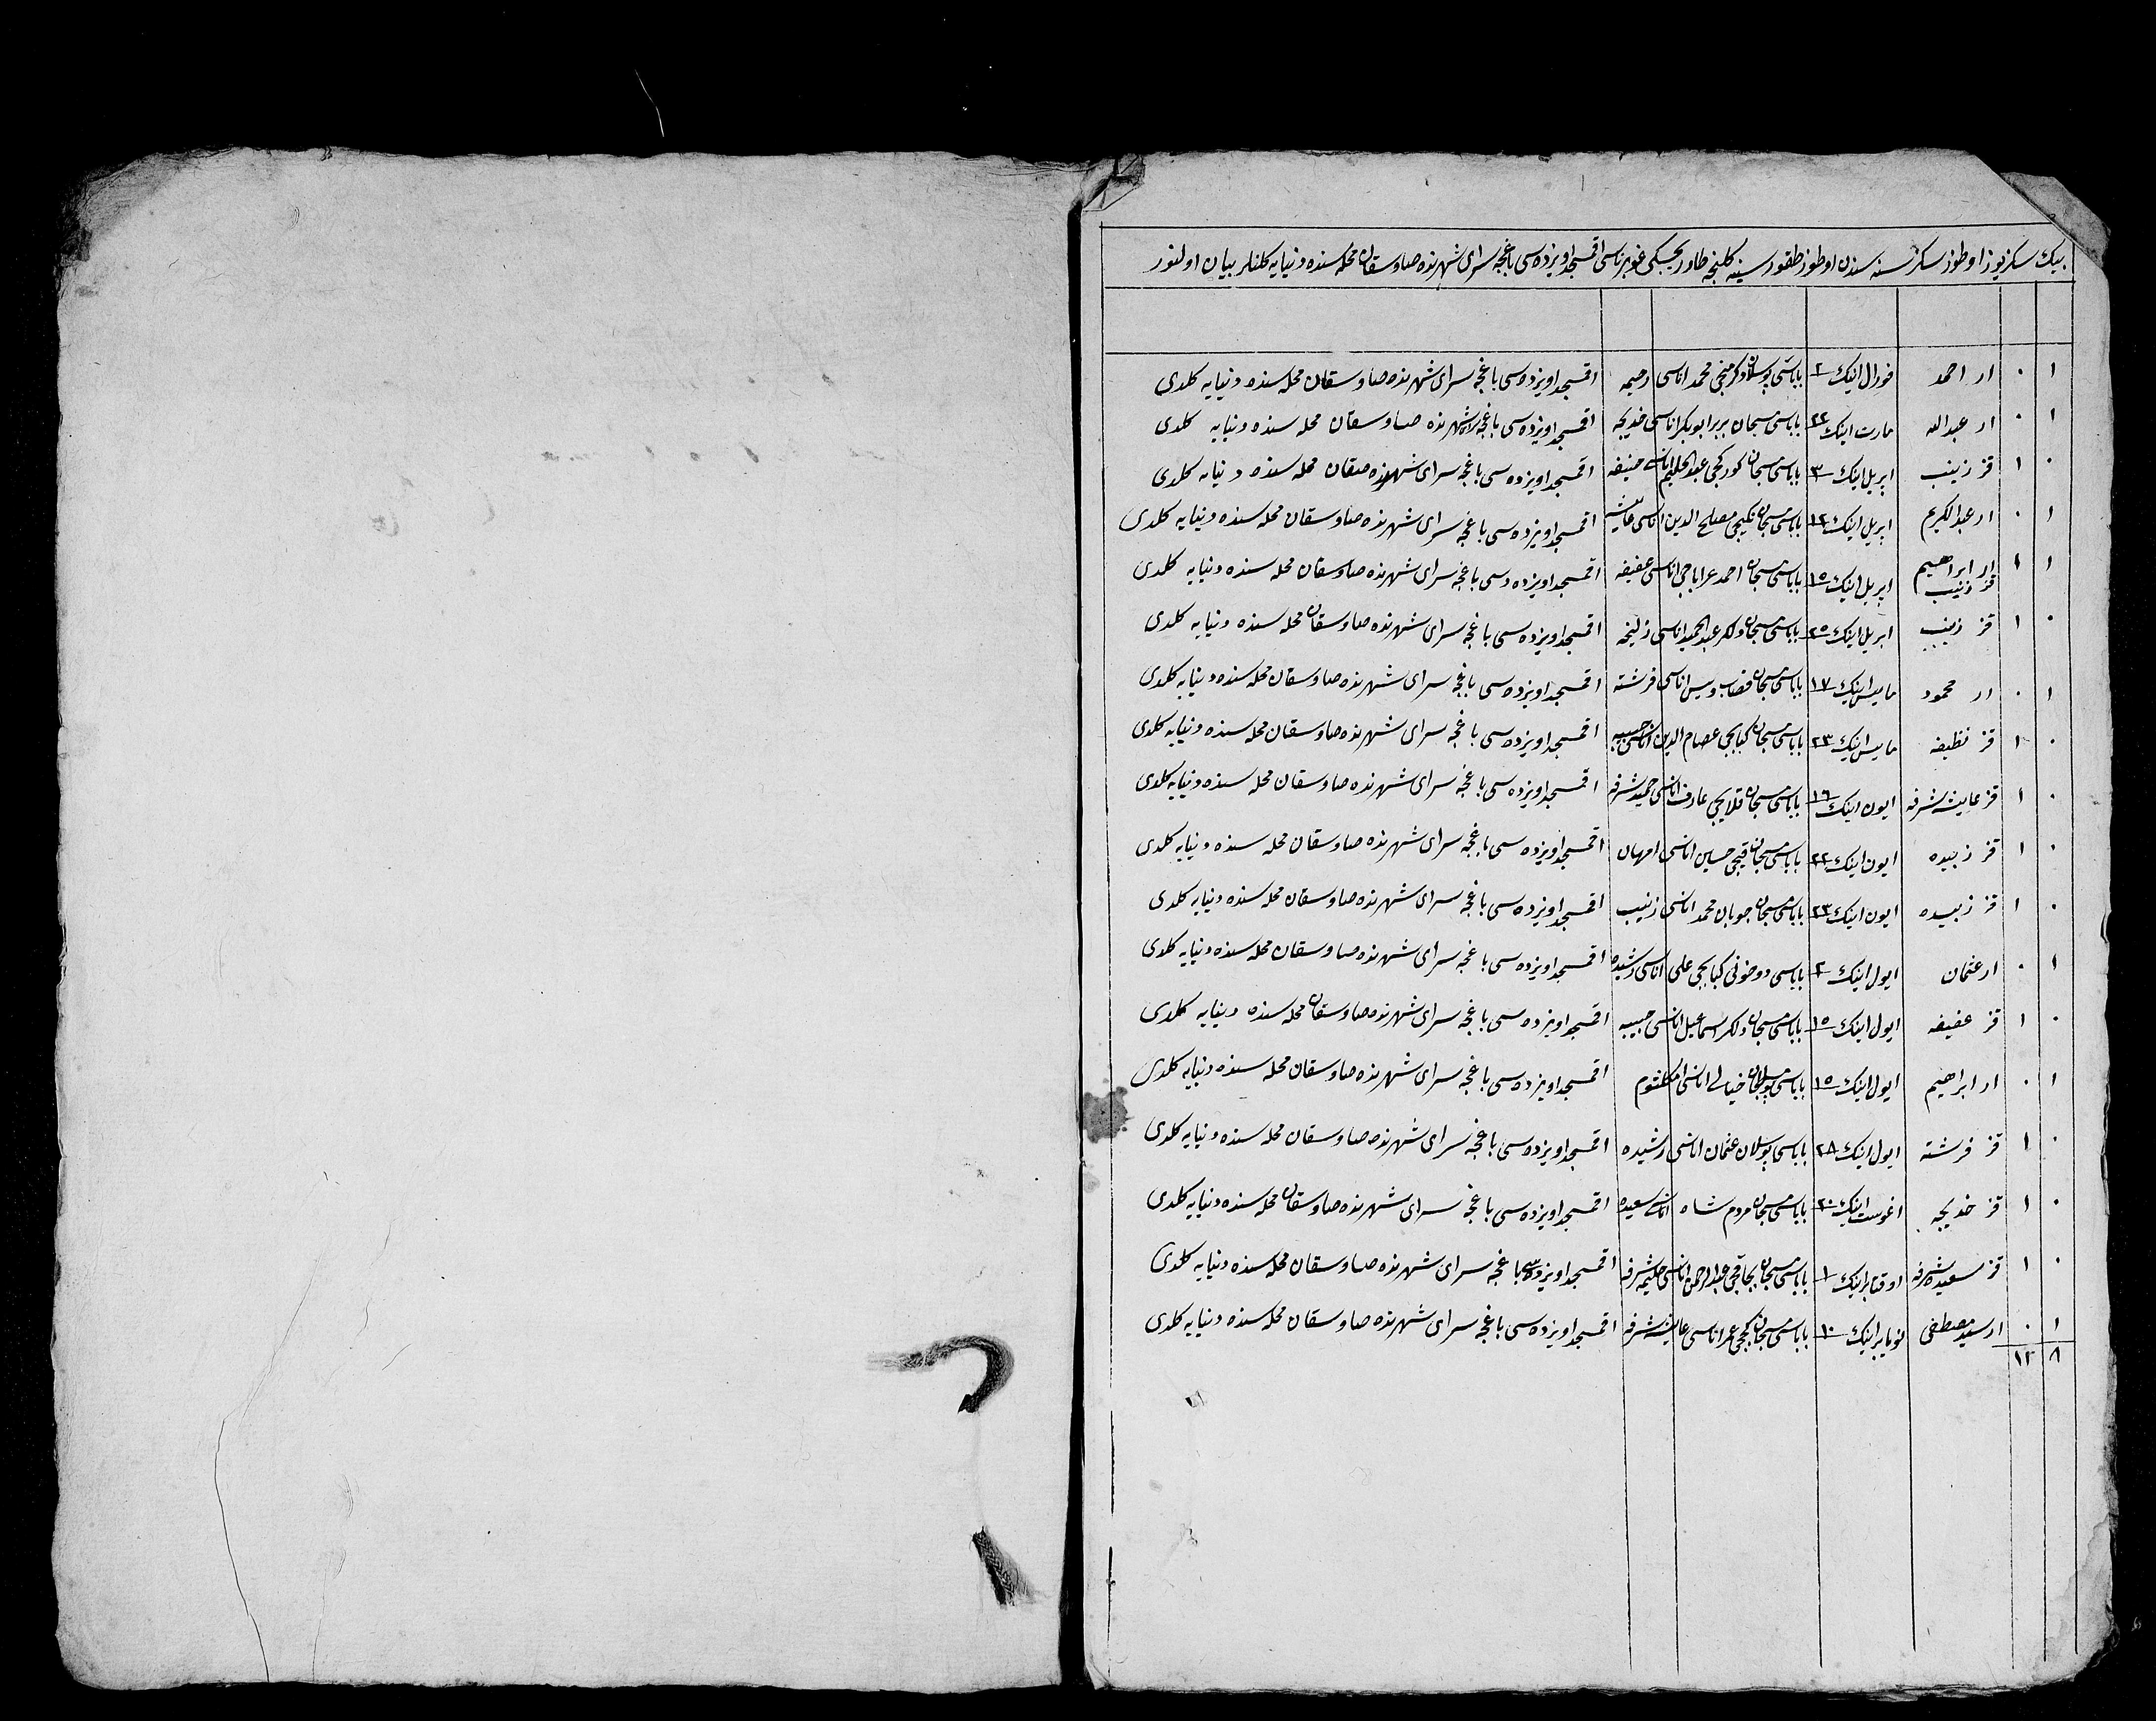 بیك سكز یوز اوطوز سكز سنه سندن اوطوز طقوز سینه كلینجه طاوریچیسكی غوبیرناسی اقمسجد اویزده سی باغچه سرای شهرنده صاوسقان محله سنده دنیایه كلنلر بیان اولنور
١ ٠ ار احمد فورال اینك ٢ باباسی محمد اناسی رحیمه اقمسجد اویزده سی باغچه سرای شهرنده صاوسقان محله سنده دنیایه كلدی
١ ٠ ار عبدالله مارت اینك ٢٢ باباسی مسچان بربر ابوبكر اناسی خدیجه اقمسجد اویزده سی باغچه سرای شهرنده صاوسقان محله سنده دنیایه كلدی
٠ ١ قز زینب اپریل اینك ٣ باباسی مسچان كوركچی عبدالحلیم اناسی حنیفه اقمسجد اویزده سی باغچه سرای شهرنده صقان محله سنده دنیایه كلدی
١ ٠ ار عبدالكریم اپریل اینك ١٢ باباسی مسچان مصلح الدین اناسی عایشه اقمسجد اویزده سی باغچه سرای شهرنده صاوسقان محله سنده دنیایه كلدی
١ ١ ار ابراهیم قز زینب اپریل اینك ١٥ باباسی مسچان احمد عراباجی اناسی عفیفه اقمسجد اویزده سی باغچه سرای شهرنده صاوسقان محله سنده دنیایه كلدی
٠ ١ قز زینب اپریل اینك ٢٥ باباسی مسچان دلكر عبدالحمید اناسی زلیخه اقمسجد اویزده سی باغچه سرای شهرنده صاوسقان محله سنده دنیایه كلدی
١ ٠ ار محمود مایس اینك ١٧ باباسی مسچان قصاب ویس اناسی فرشته اقمسجد اویزده سی باغچه سرای شهرنده صاوسقان محله سنده دنیایه كلدی
٠ ١ قز نظیفه مایس اینك ٢٣ باباسی مسچان كبابجی عصام الدین اناسی حبیبه اقمسجد اویزده سی باغچه سرای شهرنده صاوسقان محله سنده دنیایه كلدی
٠ ١ قز عایشه شرفه ایون اینك ١٦ باباسی مسچان قلایجی عارف اناسی حمیده شرفه اقمسجد اویزده سی باغچه سرای شهرنده صاوسقان محله سنده دنیایه كلدی
٠ ١ قز زبیده ایون اینك ٢٢ باباسی مسچان حسین اناسی اقمسجد اویزده سی باغچه سرای شهرنده صاوسقان محله سنده دنیایه كلدی
٠ ١ قز زبیده ایون اینك ٢٣ باباسی مسچان چوبان محمد اناسی زینب اقمسجد اویزده سی باغچه سرای شهرنده صاوسقان محله سنده دنیایه كلدی
١ ٠ ار عثمان ایول اینك ٢ باباسی دوخونی كبابجی علی اناسی رشیده اقمسجد اویزده سی باغچه سرای شهرنده صاوسقان محله سنده دنیایه كلدی
٠ ١ قز عفیفه ایول اینك ١٥ باباسی مسچان دلكر اسماعیل اناسی حبیبه اقمسجد اویزده سی باغچه سرای شهرنده صاوسقان محله سنده دنیایه كلدی
١ ٠ ار ابراهیم ایول اینك ١٥ باباسی اناسی ام كلثوم اقمسجد اویزده سی باغچه سرای شهرنده صاوسقان محله سنده دنیایه كلدی
٠ ١ قز فرشته ایول اینك ٢٨ باباسی پوسلان عثمان اناسی رشیده اقمسجد اویزده سی باغچه سرای شهرنده صاوسقان محله سنده دنیایه كلدی
٠ ١ قز خدیجه اغوست اینك ٢٠ باباسی مسچان مردم شاه اناسی سعیده اقمسجد اویزده سی باغچه سرای شهرنده صاوسقان محله سنده دنیایه كلدی
٠ ١ قز سعیده شرفه اوقتابر اینك ١ باباسی مسچان بچاقچی عبدالرحمن اناسی حلیمه شرفه اقمسجد اویزده سی باغچه سرای شهرنده صاوسقان محله سنده دنیایه كلدی
١ ٠ ار سید مصطفی نویابر اینك ١٠ باباسی مسچان عمر اناسی عایشه شرفه اقمسجد اویزده سی باغچه سرای شهرنده صاوسقان محله سنده دنیایه كلدی
٨ ١٢